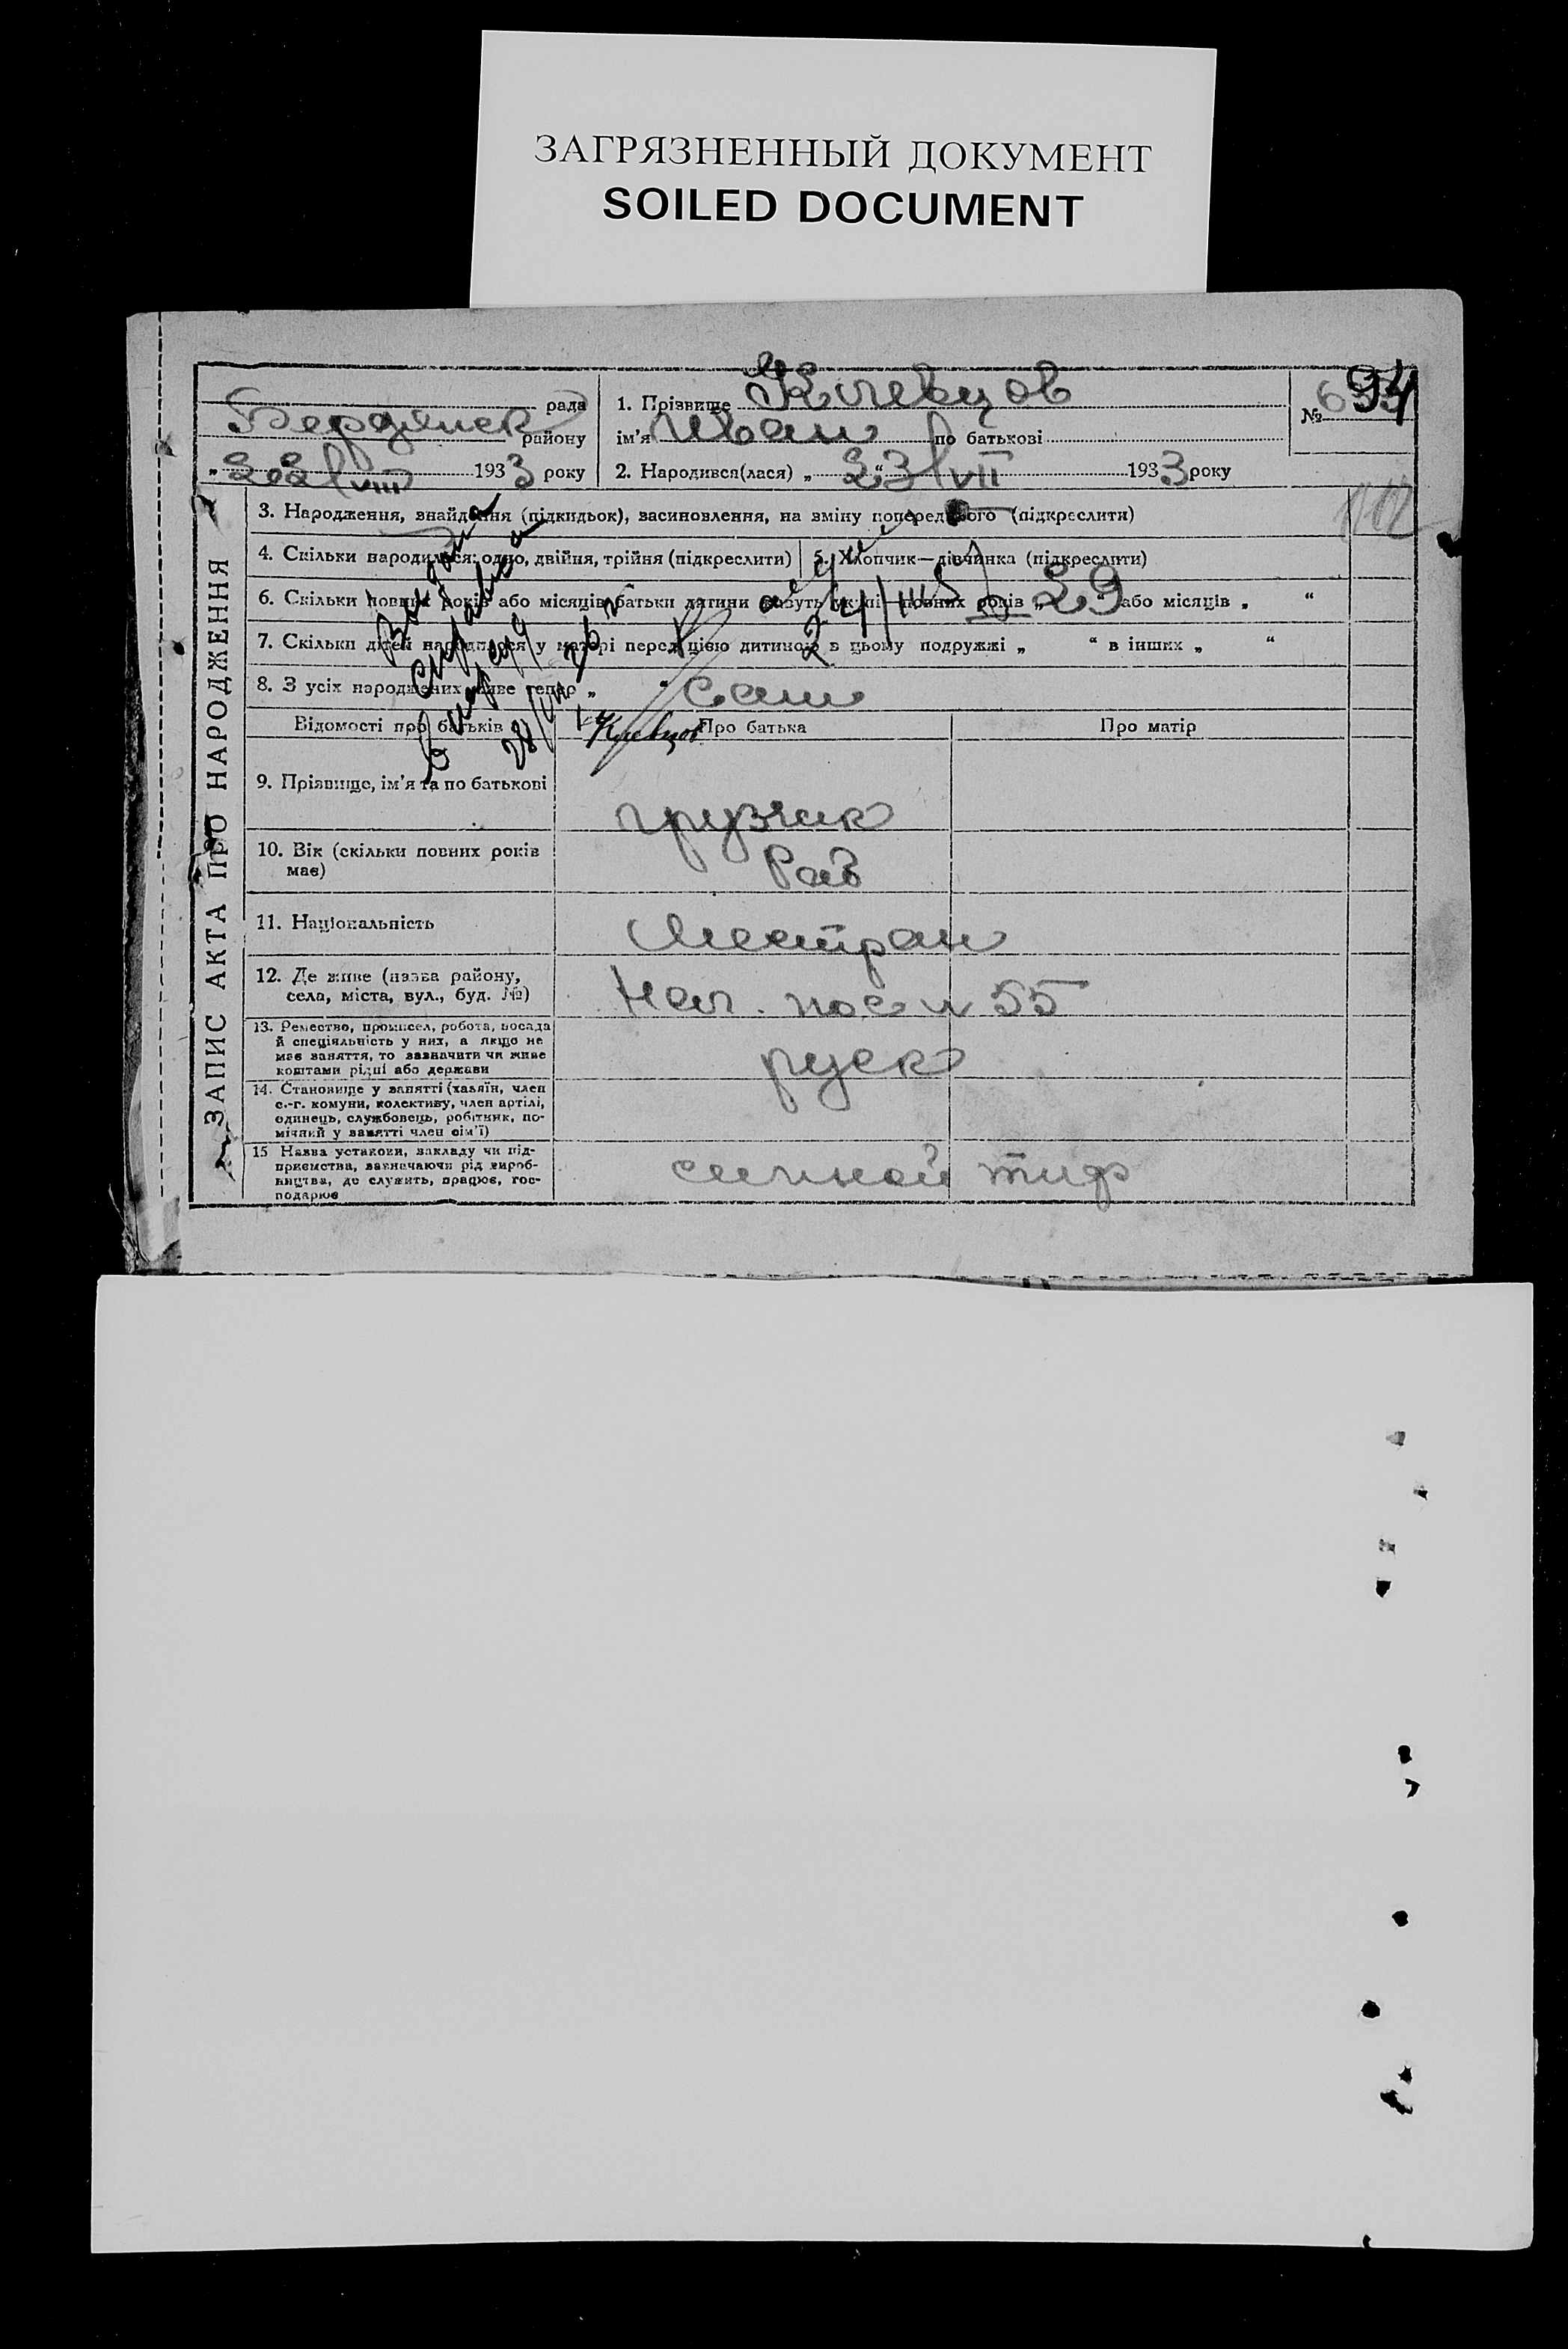 ЗАГРЯЗНЕННЫЙ ДОКУМЕНТ
SOILED DOCUMENT
рада
Бердянск району
„22/VIII 1933 року
1. Прізвище Клевцов
ім'я Иван по батькові
2. Народився(лася) „23/VII 1933 року
№ 94
ЗАПИС АКТА ПРО НАРОДЖЕННЯ
3. Народження, знайдення (підкидьок), засиновлення, на зміну попереднього (підкреслити)
4. Скільки народилося: одно, двійня, трійня (підкреслити)
5. Хлопчик—дівчинка (підкреслити)
6. Скільки повних років або місяців батьки дитини живуть вкупі—повних років „ 29 “ або місяців „ “
7. Скільки дітей народилося у матері перед цією дитиною в цьому подружжі „ “ в інших „ “
8. З усіх народжених живе тепер „ “ сам
Выдана
справка
28/VII 36 г
Клевцов
Відомості про батьків
Про батька
Про матір
9. Прізвище, ім'я та по батькові
грузчик
10. Вік (скільки повних років
має)
Раб
11. Національність
12. Де живе (назва району,
села, міста, вул., буд. №)
55
13. Ремество, промисел, робота, посада
й спеціяльність у них, а якщо не
має заняття, то зазначити чи живе
коштами рідні або держави
руск
14. Становище у занятті (хазяїн, член
с.-г. комуни, колективу, член артілі,
одинець, службовець, робітник, по-
мічний у занятті член сім'ї)
15 Назва установи, закладу чи під-
приємства, зазначаючи рід вироб-
ництва, де служить, працює, гос-
подарює
сыпной тиф